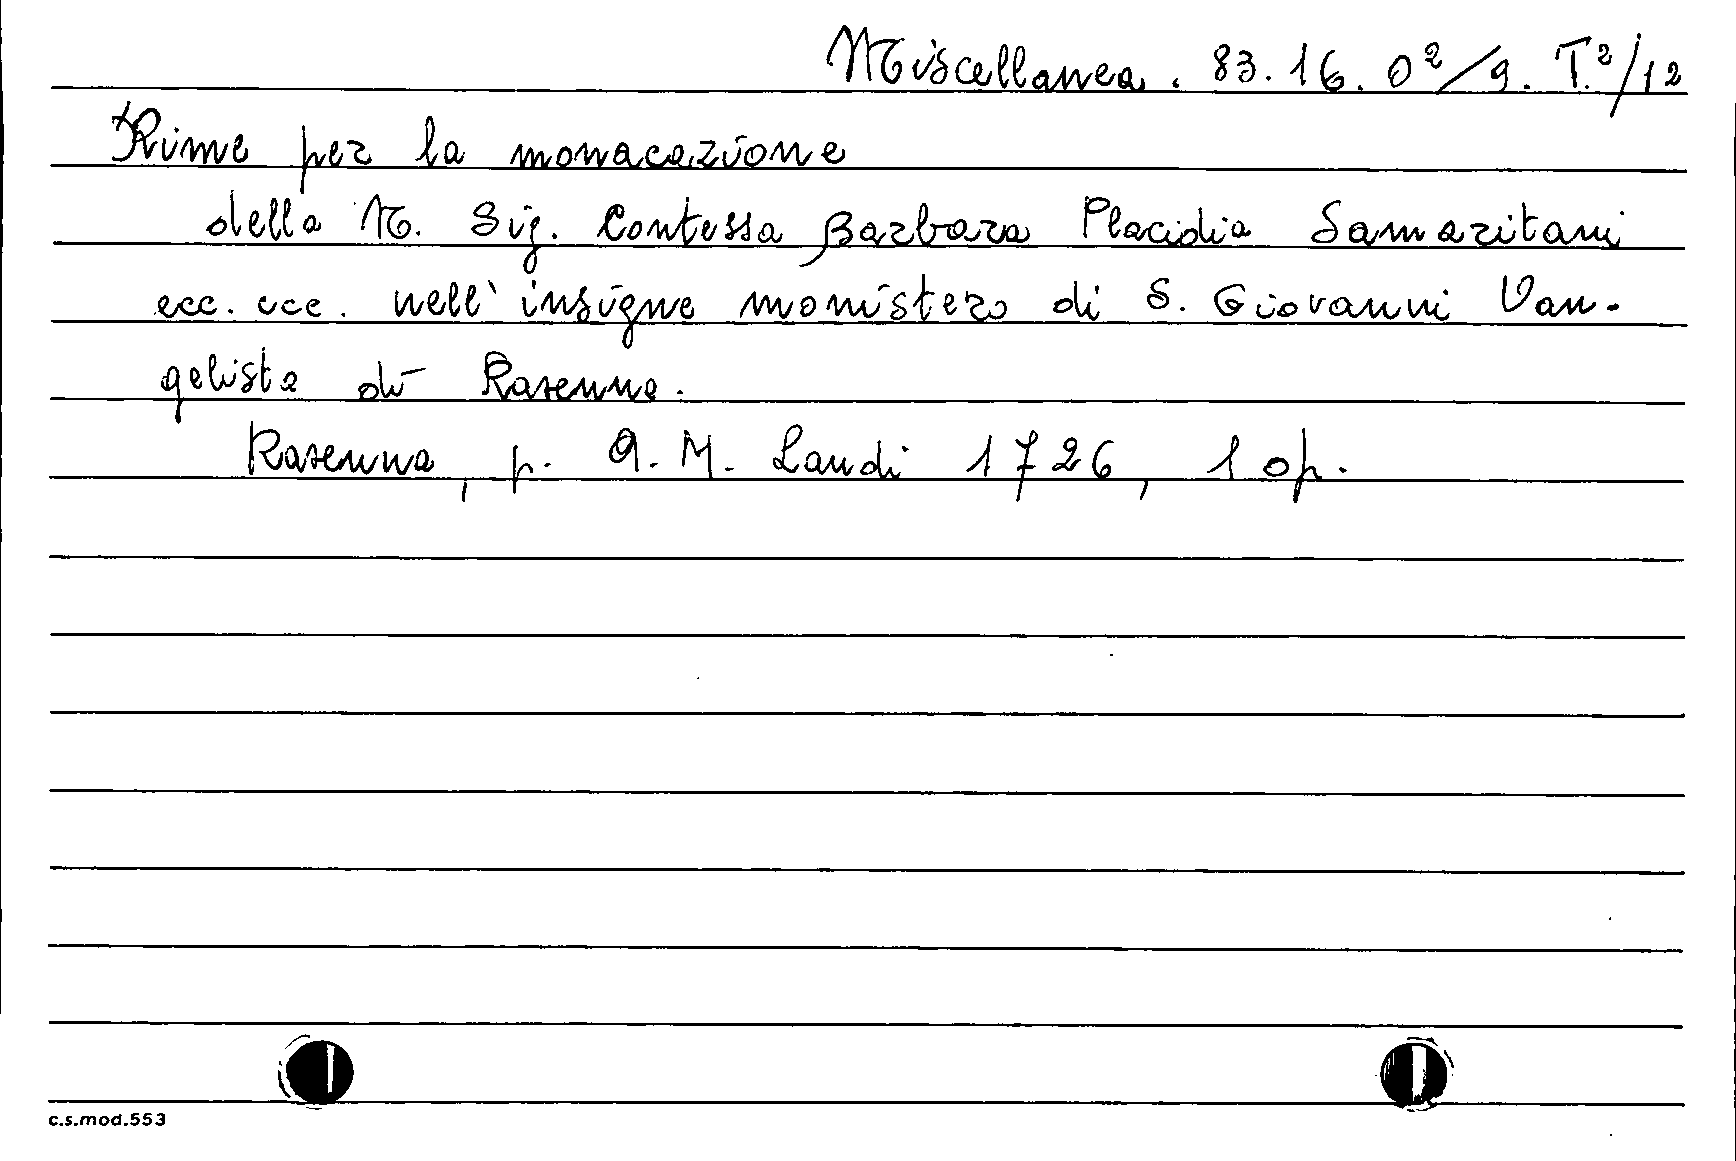 Miscellanea. 83.16.O²/9. T.²/12
Rime per la monacazione
della N. Sig. Contessa Barbara Placidia Samaritani
ecc. ecc. nell' insigne monistero di S. Giovanni Van-
gelista di Ravenna.
Ravenna, p. A. M. Landi 1726, 1 op.
c.s.mod.553